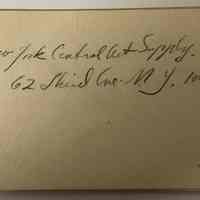 w York Central Art Supply.
62 Third Ave. N.Y.